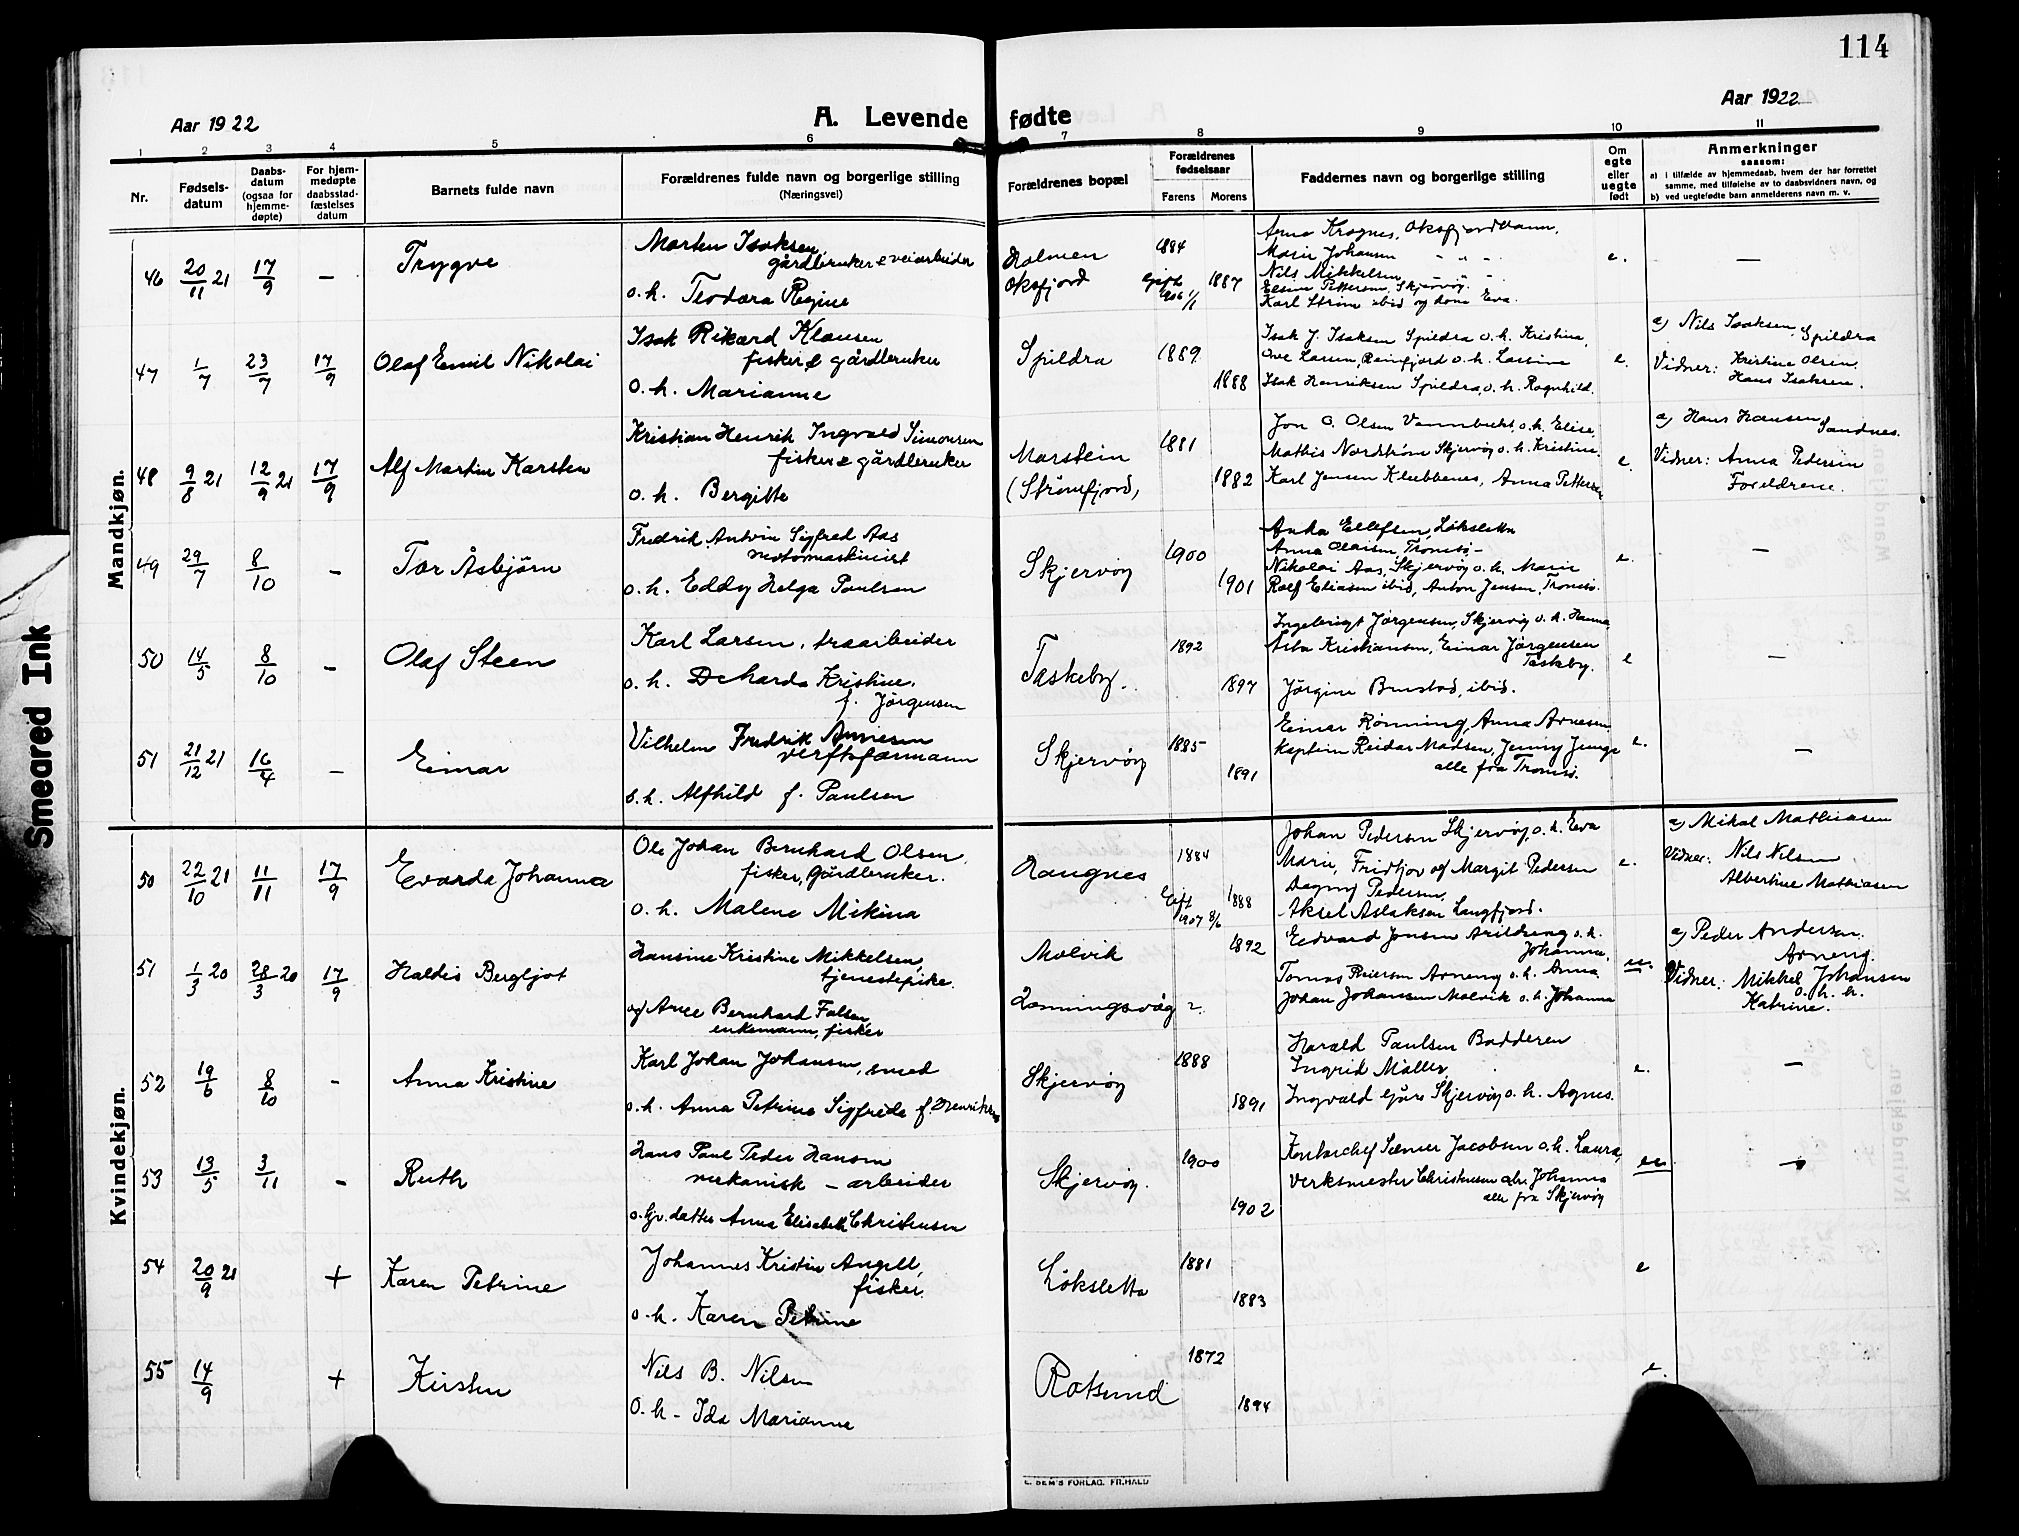 114
Aar 1922
A. Levende fødte
Aar 1922
1 2 3 4 5 6 7 8 9 10 11
Nr.
Fødsels-
datum
Daabs-
datum
(ogsaa for
hjemme-
døpte)
For hjem-
medøpte
daabsstad-
fæstelses
datum
Barnets fulde navn
Forældrenes fulde navn og borgerlige stilling
(Næringsvei)
Forældrenes bopæl
Forældrenes
fødselsaar
Farens Morens
Faddernes navn og borgerlige stilling
Om
egte
eller
uegte
født
Anmerkninger
saasom:
a) i tilfælde av hjemmedaab, hvem der har forrettet
samme, med tilføielse av to daabsvidners navn, og
b) ved uegtefødte barn anmelderens navn m. v.
Mandkjøn.
46 20/11 21 17/9 – Trygve
Morten Isaksen,
gårdbruker & veiarbeider
o.h. Teodora Regine
Holmen
Oksfjord
1884
Gift
1906 1/1 1887
Anna Krognes, Oksfjordvann,
Marie Johansen " " "
Nils Mikkelsen – " –
Elsine Pettersen, Skjervøy.
Karl Strøm ibid og kone Eva.
e. —
47 1/7 23/7 17/9 Olaf Emil Nikolai
Isak Rikard Klausen
fisker & gårdbruker
o.h. Marianne
Spildra
1889
1888
Isak J. Isaksen Spildra o.h. Kristine,
Ove Larsen, Reinfjord o.h. Lassine
Isak Henriksen Spildra, o.h. Ragnhild.
e.
a) Nils Isaksen, Spildra
Vidner: Kristine Olsen
Hans Isaksen.
48 9/8 21 12/9 21 17/9 Alf Martin Karsten
Kristian Henrik Ingvald Simonsen
fisker & gårdbruker
o.h. Bergitte
Marstein
(Strømfjord)
1881
1882
Jon O. Olsen Vannbukt, o.h. Elise,
Mathis Nordstrøm Skjervøy o.h. Kristine.
Karl Jensen Klubbenes, Anna Pettersen
e.
a) Hans Hansen, Sandnes.
Vidner: Anna Pedersen
Foreldrene.
49 29/7 8/10 – Tor Åsbjørn
Fredrik Antoin Sigfred Aas
motormaskinist
o.h. Eddy Helga Paulsen
Skjervøy
1900
1901
Anka Ellefsen, Løksletta
Anna Olaisen, Tromsø –
Nikolai Aas, Skjervøy o.h. Marie
Rolf Eliasen ibid, Anton Jensen, Tromsø.
e. —
50 14/5 8/10 – Olaf Steen
Karl Larsen, traarbeider
o.h. Deharda Kristine,
f. Jørgensen
Taskeby.
1892
1897
Ingebrigt Jørgensen, Skjervøy o.h. Hanna
Asta Kristiansen, Einar Jørgensen
Taskeby.
Jørgine Bustad, ibid.
e —
51 21/12 21 16/4 – Einar
Vilhelm Fredrik Arnesen
verftsformann
o.h. Alfhild f. Paulsen
Skjervøy
1885
1891
Einar Rønning, Anna Arnesen
Kaptein Reidar Madsen, Jenny Junge
alle fra Tromsø.
e. —
Kvindekjøn.
50 22/10 21 11/11 17/9 Evarda Johanna
Ole Johan Bernhard Olsen,
fisker, gårdbruker.
o.h. Malene Mikina
Haugnes
1884
Gift
1907 8/6 1888
Johan Pedersen Skjervøy, o.h. Eva
Marie, Fridtjov og Margit Pedersen
Dagny Pedersen,
Aksel Aslaksen Langfjord.
e.
a) Mikal Mathiasen
Vidner: Nils Nilsen
Albertine Mathiasen
51 1/3 20 28/3 20 17/9 Haldis Bergljot
Hansine Kristine Mikkelsen,
tjenestepike.
og Arne Bernhard Falsen,
enkemann, fisker
Molvik
Honningsvåg
1892
2.
Edvard Jensen Årildseng o.h.
Johanna,
Tomas Reiersen Arneng o.h. Anna
Johan Johansen Molvik o.h. Johanna
ue.
a) Peder Andersen
Arneng.
Vidner: Mikkel Johansen
o.h.h.
Katrine.
52 19/6 8/10 – Anna Kristine
Karl Johan Johansen, smed
o.h. Anna Petrine Sigfrida f. Henriksen
Skjervøy
1888
1891
Harald Paulsen Badderen
Ingrid Møller,
Ingvald Gjøre Skjervøy o.h. Agnes.
e. —
53 13/5 3/11 – Ruth
Hans Paul Peder Hansen
mekanisk – arbeider
o. Gv. datter Anna Elisabeth Christensen
Skjervøy.
1900
1902
Kontorchef Sæmer Jacobsen o.h. Laura,
Verksmester Christensen o.h. Johanna
alle fra Skjervøy
ue —
54 20/9 21 + Karen Petrine
Johannes Kristin Angell,
fisker.
o.h. Karen Petrine
Løksletta
1881
1883
e
55 14/9 + Kirsten
Nils B. Nilsen
O.h – Ida Marianne
Rotsund
1872
1894
e.
E. SEM'S FORLAG. FR.HALD
Smeared Ink